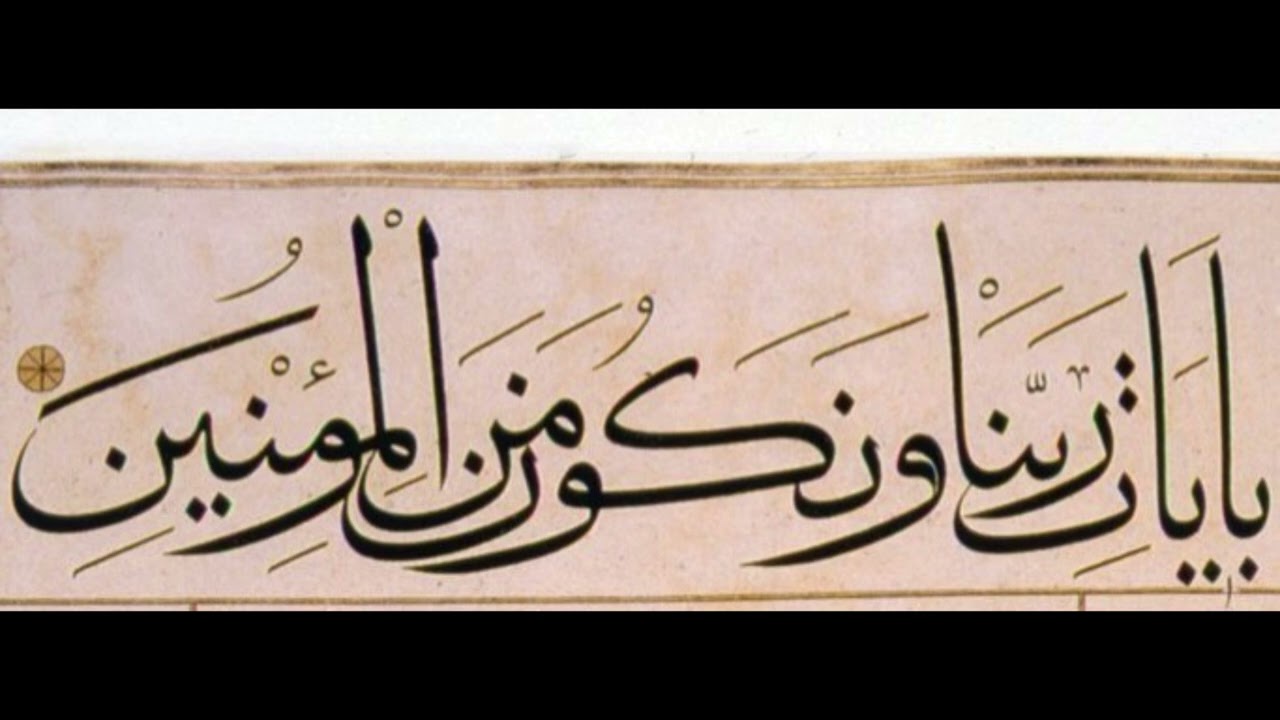 بِاٰيَاتِ رَبِّنَا وَنَكُونَ مِنَ الْمُؤْمِنِينَ